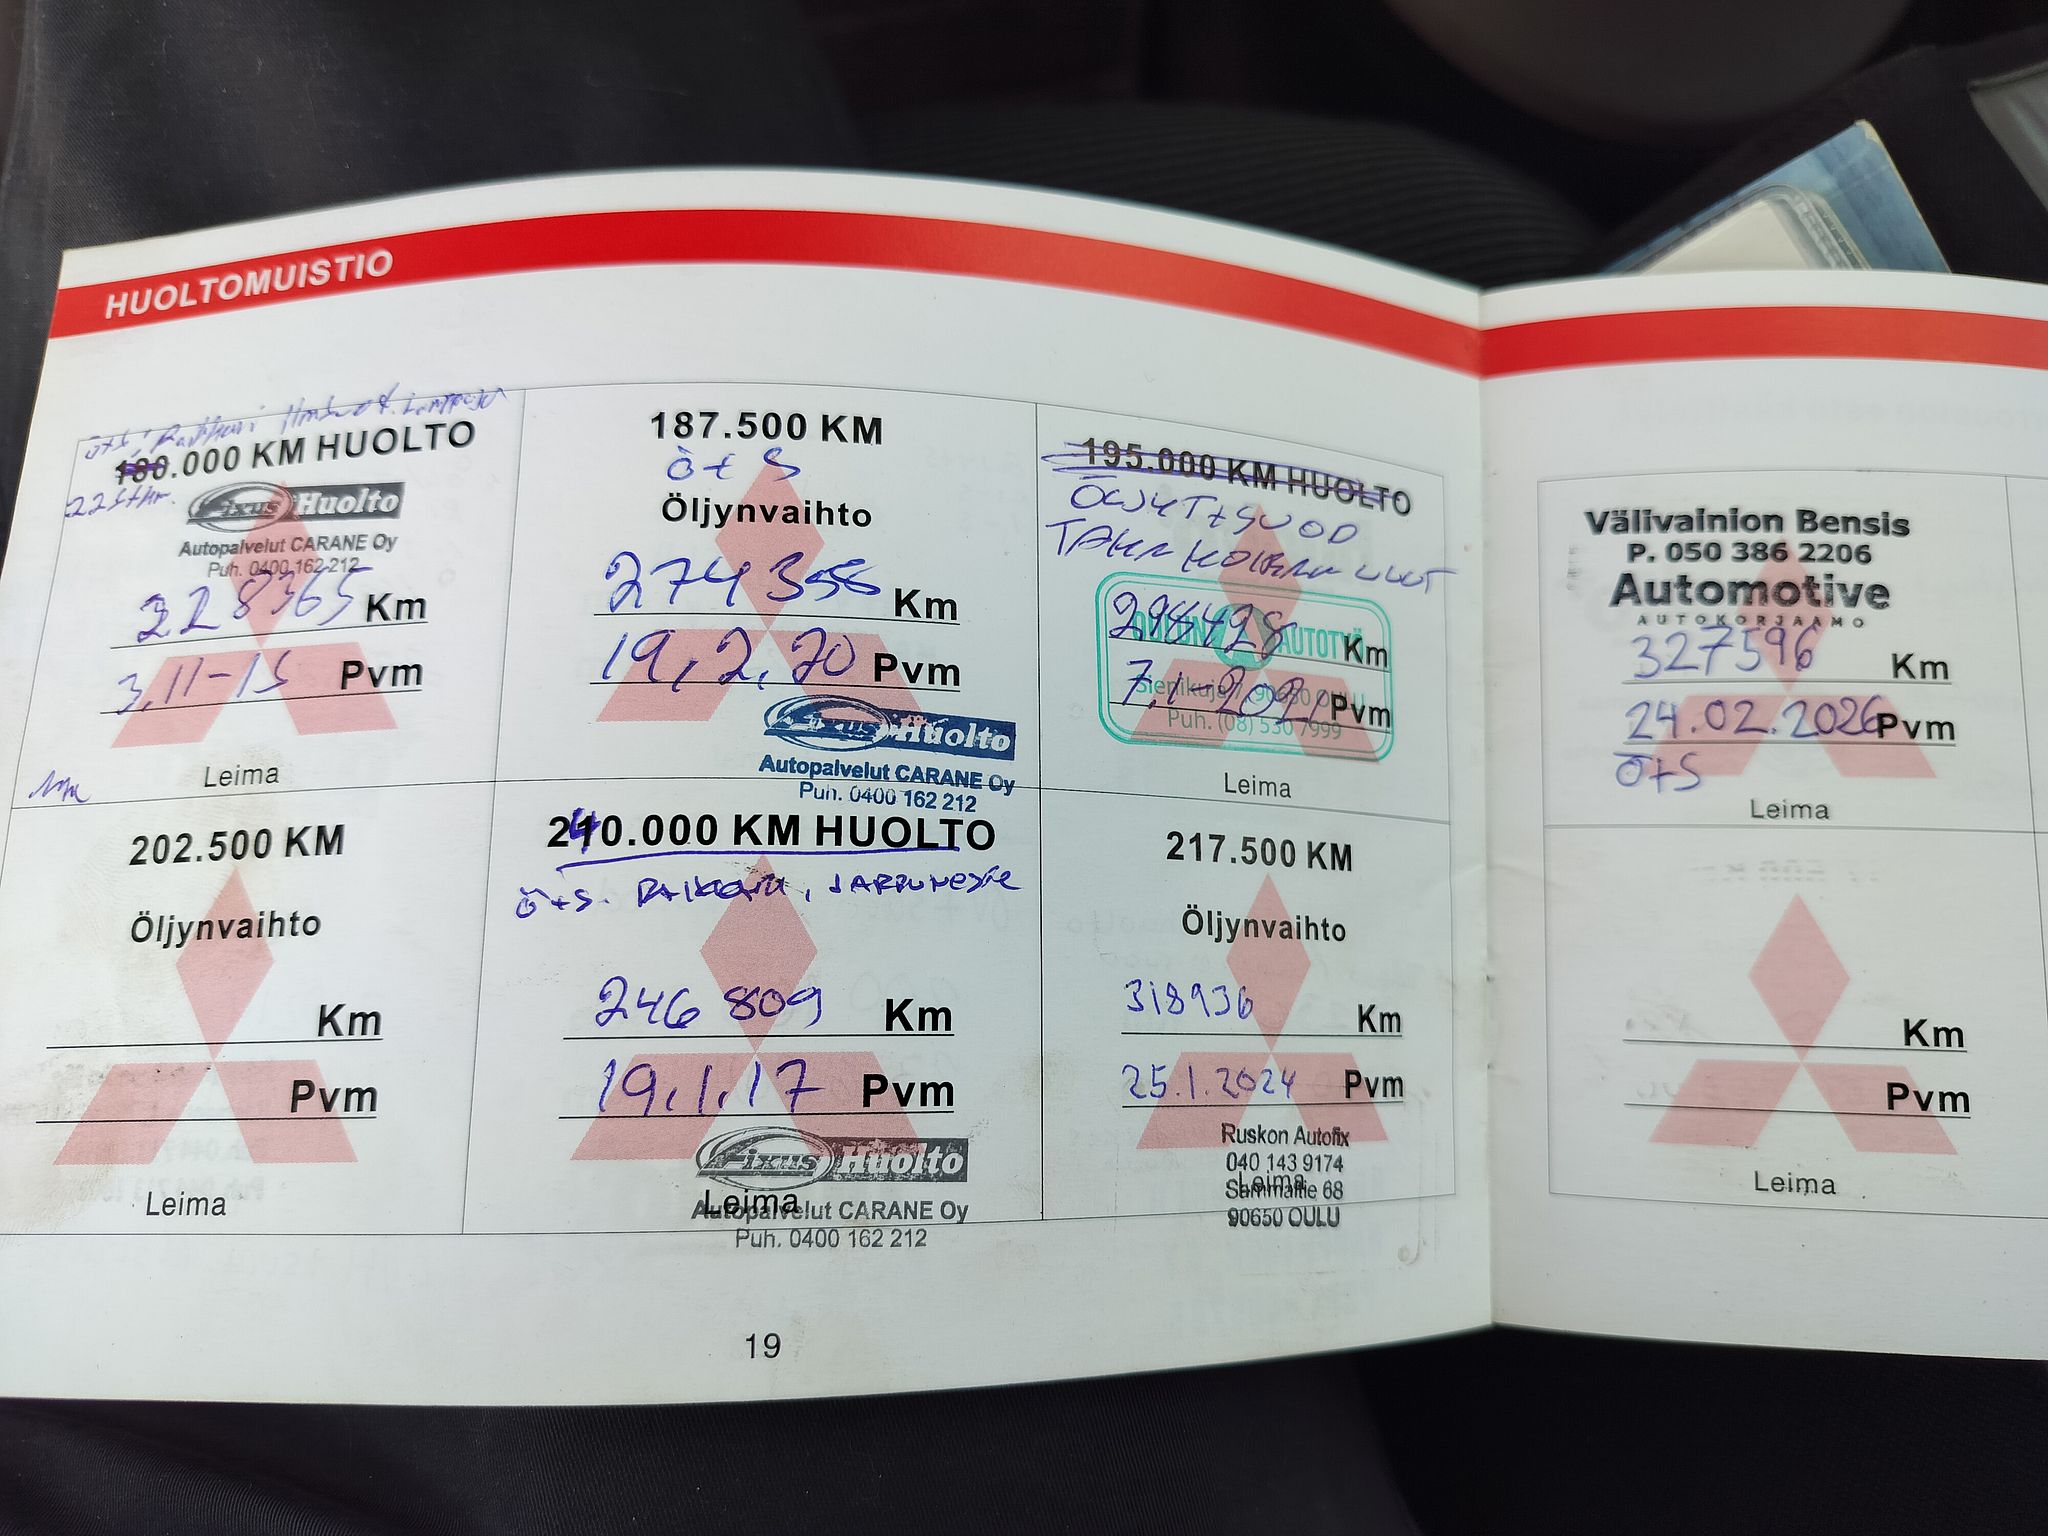 HUOLTOMUISTIO
180.000 KM HUOLTO
Fixus Huolto
Autopalvelut CARANE Oy
Puh. 0400 162 212
228365 Km
3,11-15 Pvm
Leima
187.500 KM
Ö+S
Öljynvaihto
274355 Km
19,2,20 Pvm
Fixus Huolto
Autopalvelut CARANE Oy
Puh. 0400 162 212
195.000 KM HUOLTO
TAKA
AUTOTYÖ
298428 Km
90650 OULU
7,1-2021 Pvm
Puh. (08) 530 7999
Leima
Välivainion Bensis
P. 050 386 2206
Automotive
AUTOKORJAAMO
327596 Km
24.02.2026 Pvm
Ö+S
Leima
202.500 KM
Öljynvaihto
Km
Pvm
Leima
240.000 KM HUOLTO
Ö+S.
246 809 Km
19,1,17 Pvm
Fixus Huolto
Leima
Autopalvelut CARANE Oy
Puh. 0400 162 212
217.500 KM
Öljynvaihto
318936 Km
25.1.2024 Pvm
Ruskon Autofix
040 143 9174
Leima
Sammaltie 68
90650 OULU
Km
Pvm
Leima
19